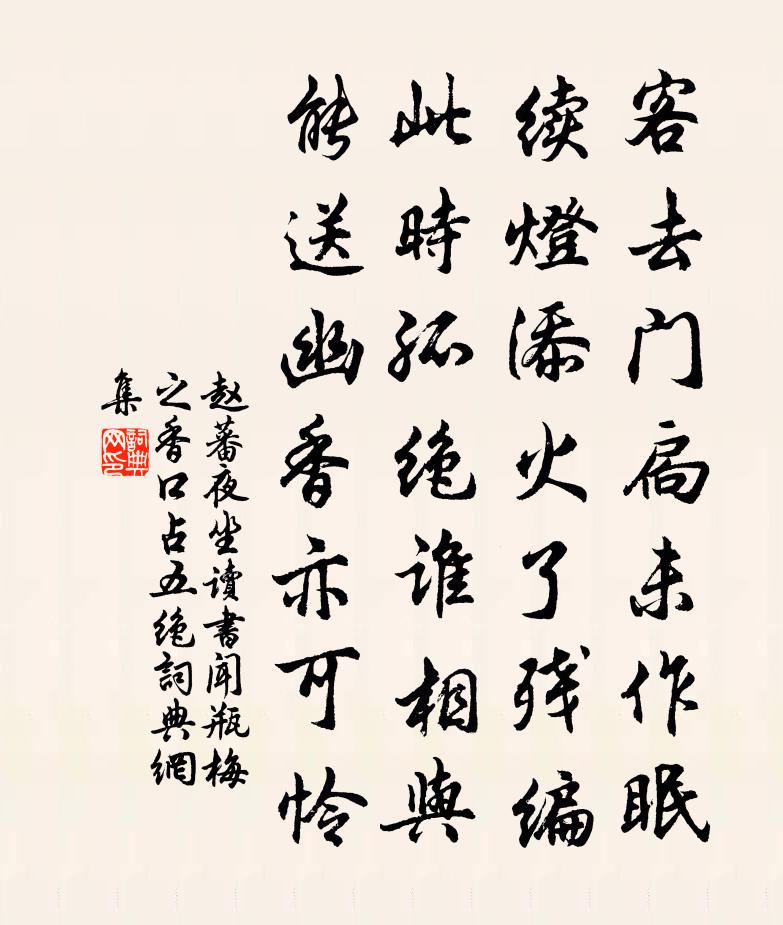 客去门扃未作眠
续燈添火了残编
此時孤绝谁相與
能送幽香亦可怜
赵蕃夜坐讀書闻瓶梅
之香口占五绝詞典網
集
詞典
网印